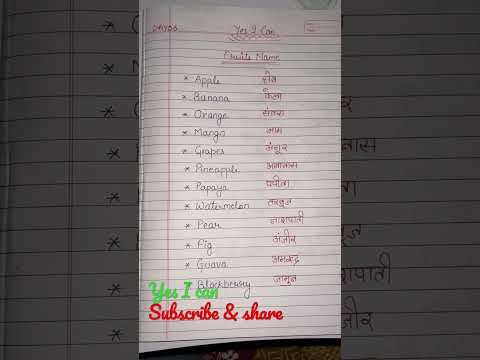 Yes I Can
Fruits Name
* Apple सेब
* Banana केला
* Orange संतरा
* Mango आम
* Grapes अंगूर
* Pineapple अनानास
* Papaya पपीता
* Watermelon तरबूज
* Pear नाशपाती
* Pig अंजीर
* Guava अमरूद
Blackberry जामुन
Yes I can
Subscribe & share